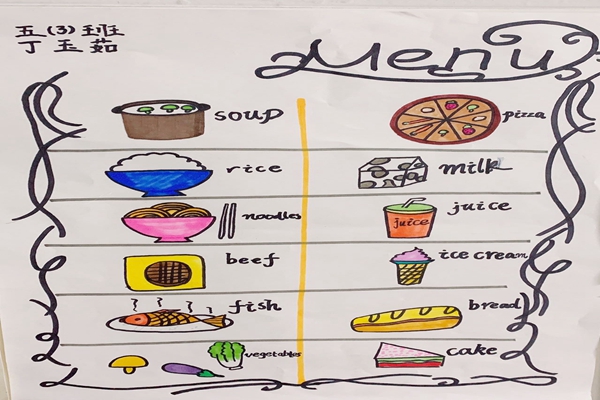 五(3)班
丁玉茹
Menu
soup
rice
noodles
beef
fish
vegetables
pizza
milk
juice
juice
ice cream
bread
cake